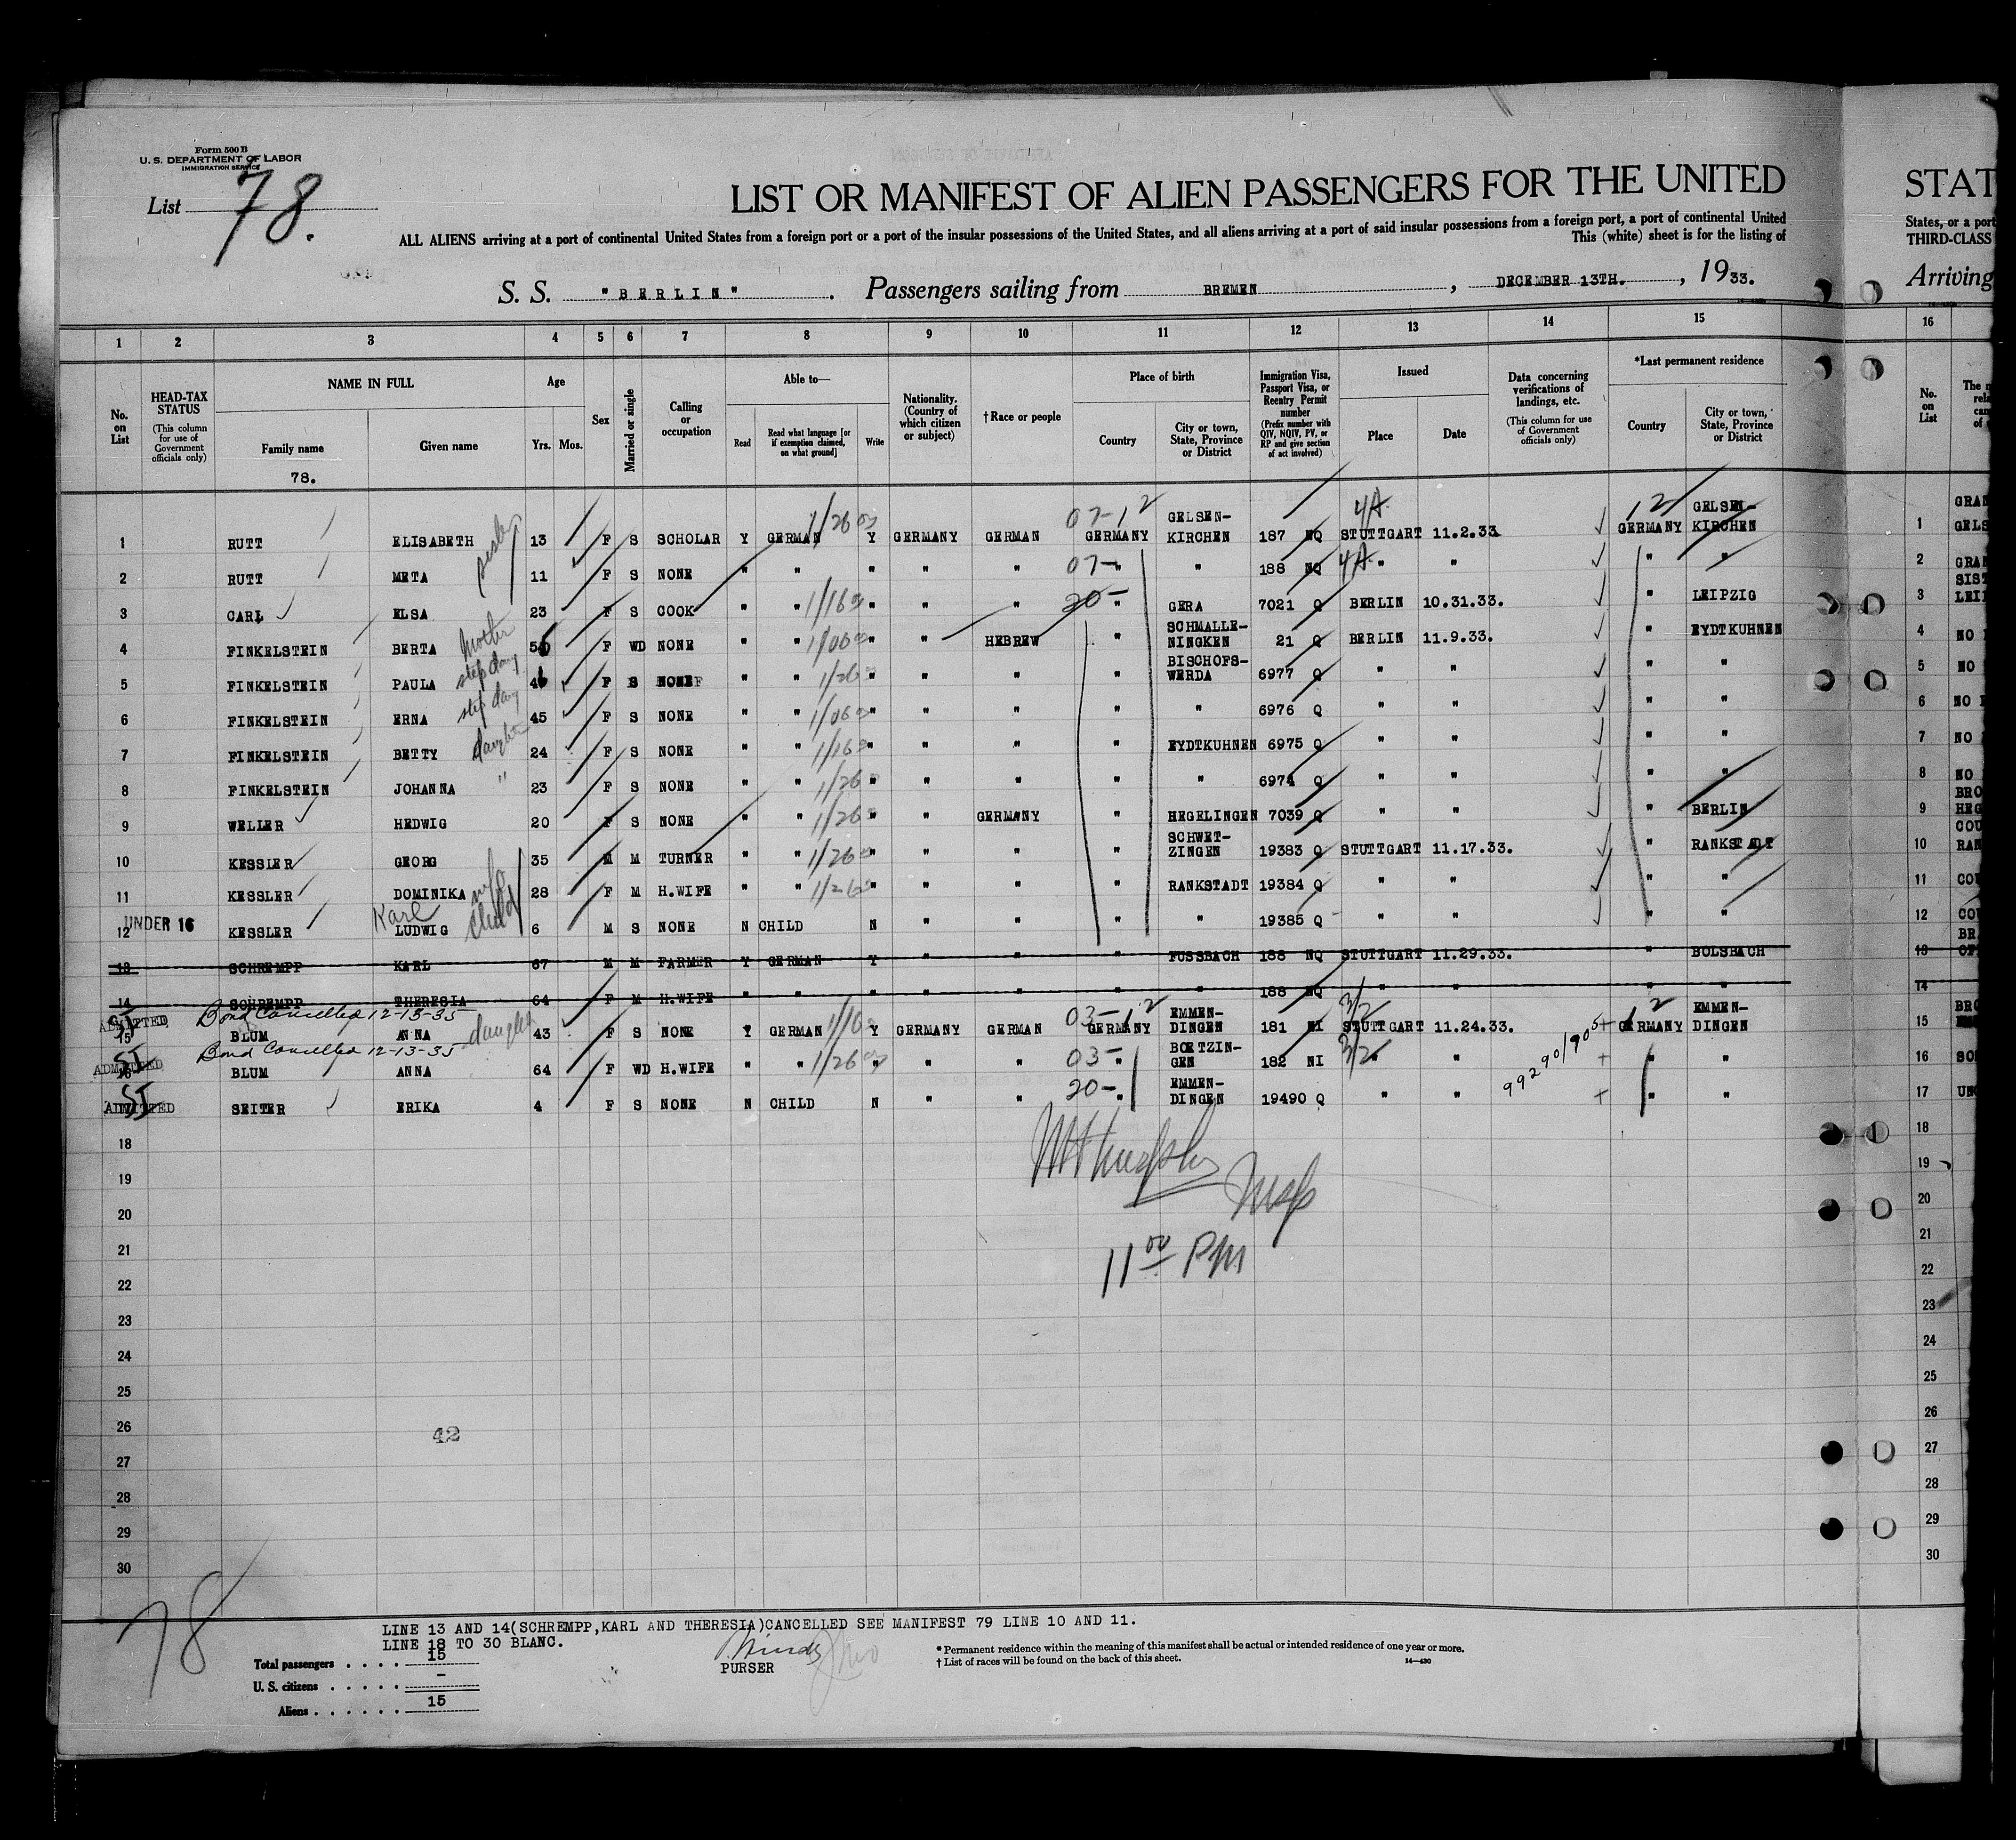 Form 500 B
U. S. DEPARTMENT OF LABOR
IMMIGRATION SERVICE
List 78.
LIST OR MANIFEST OF ALIEN PASSENGERS FOR THE UNITED
ALL ALIENS arriving at a port of continental United States from a foreign port or a port of the insular possessions of the United States, and all aliens arriving at a port of said insular possessions from a foreign port, a port of continental United
This (white) sheet is for the listing of
S. S. "BERLIN". Passengers sailing from BREMEN, DECEMBER 13TH., 1933.
STAT
States, or a port
THIRD-CLASS
Arriving
1 2 3 4 5 6 7 8 9 10 11 12 13 14 15 16
No. on List
HEAD-TAX STATUS (This column for use of Government officials only)
NAME IN FULL
Family name
Given name
78.
Age
Yrs. Mos.
Sex
Married or single
Calling or occupation
Able to—
Read
Read what language [or if exemption claimed, on what ground]
Write
Nationality. (Country of which citizen or subject)
† Race or people
Place of birth
Country
City or town, State, Province or District
Immigration Visa, Passport Visa, or Reentry Permit number (Prefix number with QIV, NQIV, PV, or RP and give section of act involved)
Issued
Place
Date
Data concerning verifications of landings, etc. (This column for use of Government officials only)
*Last permanent residence
Country
City or town, State, Province or District
No. on List
1 RUTT ELISABETH 13 F S SCHOLAR Y GERMAN Y GERMANY GERMAN 07-12 GERMANY GELSEN-KIRCHEN 187 NQ 4A STUTTGART 11.2.33. 12 GERMANY GELSEN-KIRCHEN 1
2 RUTT META 11 F S NONE " " " " " 07- " " 188 NQ 4A " " " " 2
3 CARL ELSA 23 F S COOK " " " " " 20- " GERA 7021 Q BERLIN 10.31.33. " LEIPZIG 3
4 FINKELSTEIN BERTA mother F WD NONE " " " " HEBREW " SCHMALLE-NINGKEN 21 Q BERLIN 11.9.33. " EYDTKUHNEN 4
5 FINKELSTEIN PAULA step daug F S NONE " " " " " " BISCHOFS-WERDA 6977 Q " " " " 5
6 FINKELSTEIN ERNA step daug 45 F S NONE " " " " " " " 6976 Q " " " " 6
7 FINKELSTEIN BETTY daughter 24 F S NONE " " " " " " EYDTKUHNEN 6975 Q " " " " 7
8 FINKELSTEIN JOHANNA " 23 F S NONE " " " " " " " 6974 Q " " " " 8
9 WELLER HEDWIG 20 F S NONE " " " " GERMANY " HEGELINGEN 7039 Q " " " BERLIN 9
10 KESSLER GEORG 35 M M TURNER " " " " " " SCHWET-ZINGEN 19383 Q STUTTGART 11.17.33. " RANKSTADT 10
11 KESSLER DOMINIKA wife 28 F M H.WIFE " " " " " " RANKSTADT 19384 Q " " " " 11
UNDER 16
12 KESSLER Karl LUDWIG child 6 M S NONE N CHILD N " " " " 19385 Q " " " " 12
13 SCHREMPP KARL 67 M M FARMER Y GERMAN Y " " " FUSSBACH 188 NQ STUTTGART 11.29.33. " BOLSBACH 13
14 SCHREMPP THERESIA 64 F M H.WIFE " " " " " " " 188 NQ " " " " 14
Bond Cancelled 12-13-35
SI ADMITTED
15 BLUM ANNA daughter 43 F S NONE Y GERMAN Y GERMANY GERMAN 03-12 GERMANY EMMEN-DINGEN 181 NI 3/2 STUTTGART 11.24.33. 12 GERMANY EMMEN-DINGEN 15
Bond Cancelled 12-13-35
SI ADMITTED
16 BLUM ANNA 64 F WD H.WIFE " " " " " 03- " BOETZIN-GEN 182 NI 3/2 " " 99290/905 " " 16
SI ADMITTED
SEITER ERIKA 4 F S NONE N CHILD N " " 20- " EMMEN-DINGEN 19490 Q " " " " 17
18 18
19 19
20 20
21 21
22 22
23 23
24 24
25 25
26 26
27 27
28 28
29 29
30 30
11 00 PM
42
78
LINE 13 AND 14(SCHREMPP,KARL AND THERESIA)CANCELLED SEE MANIFEST 79 LINE 10 AND 11.
LINE 18 TO 30 BLANC.
Total passengers . . . . 15
U. S. citizens . . . . . -
Aliens . . . . . . 15
PURSER
* Permanent residence within the meaning of this manifest shall be actual or intended residence of one year or more.
† List of races will be found on the back of this sheet.
14—430